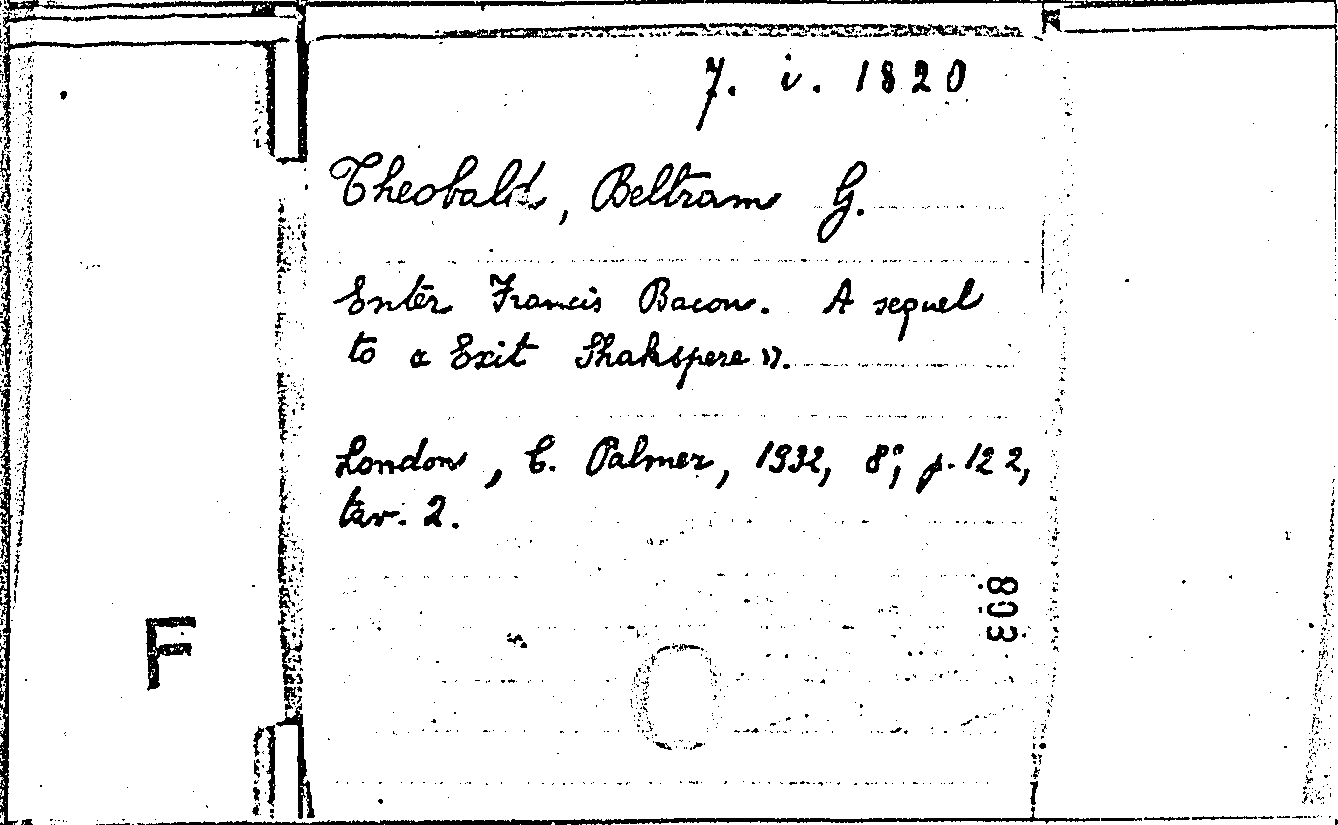 7. i. 1820
Theobald, Beltram G.
Enter Francis Bacon. A sequel
to « Exit Shakspere ».
London, C. Palmer, 1932, 8°, p. 122,
tav. 2.
803
F